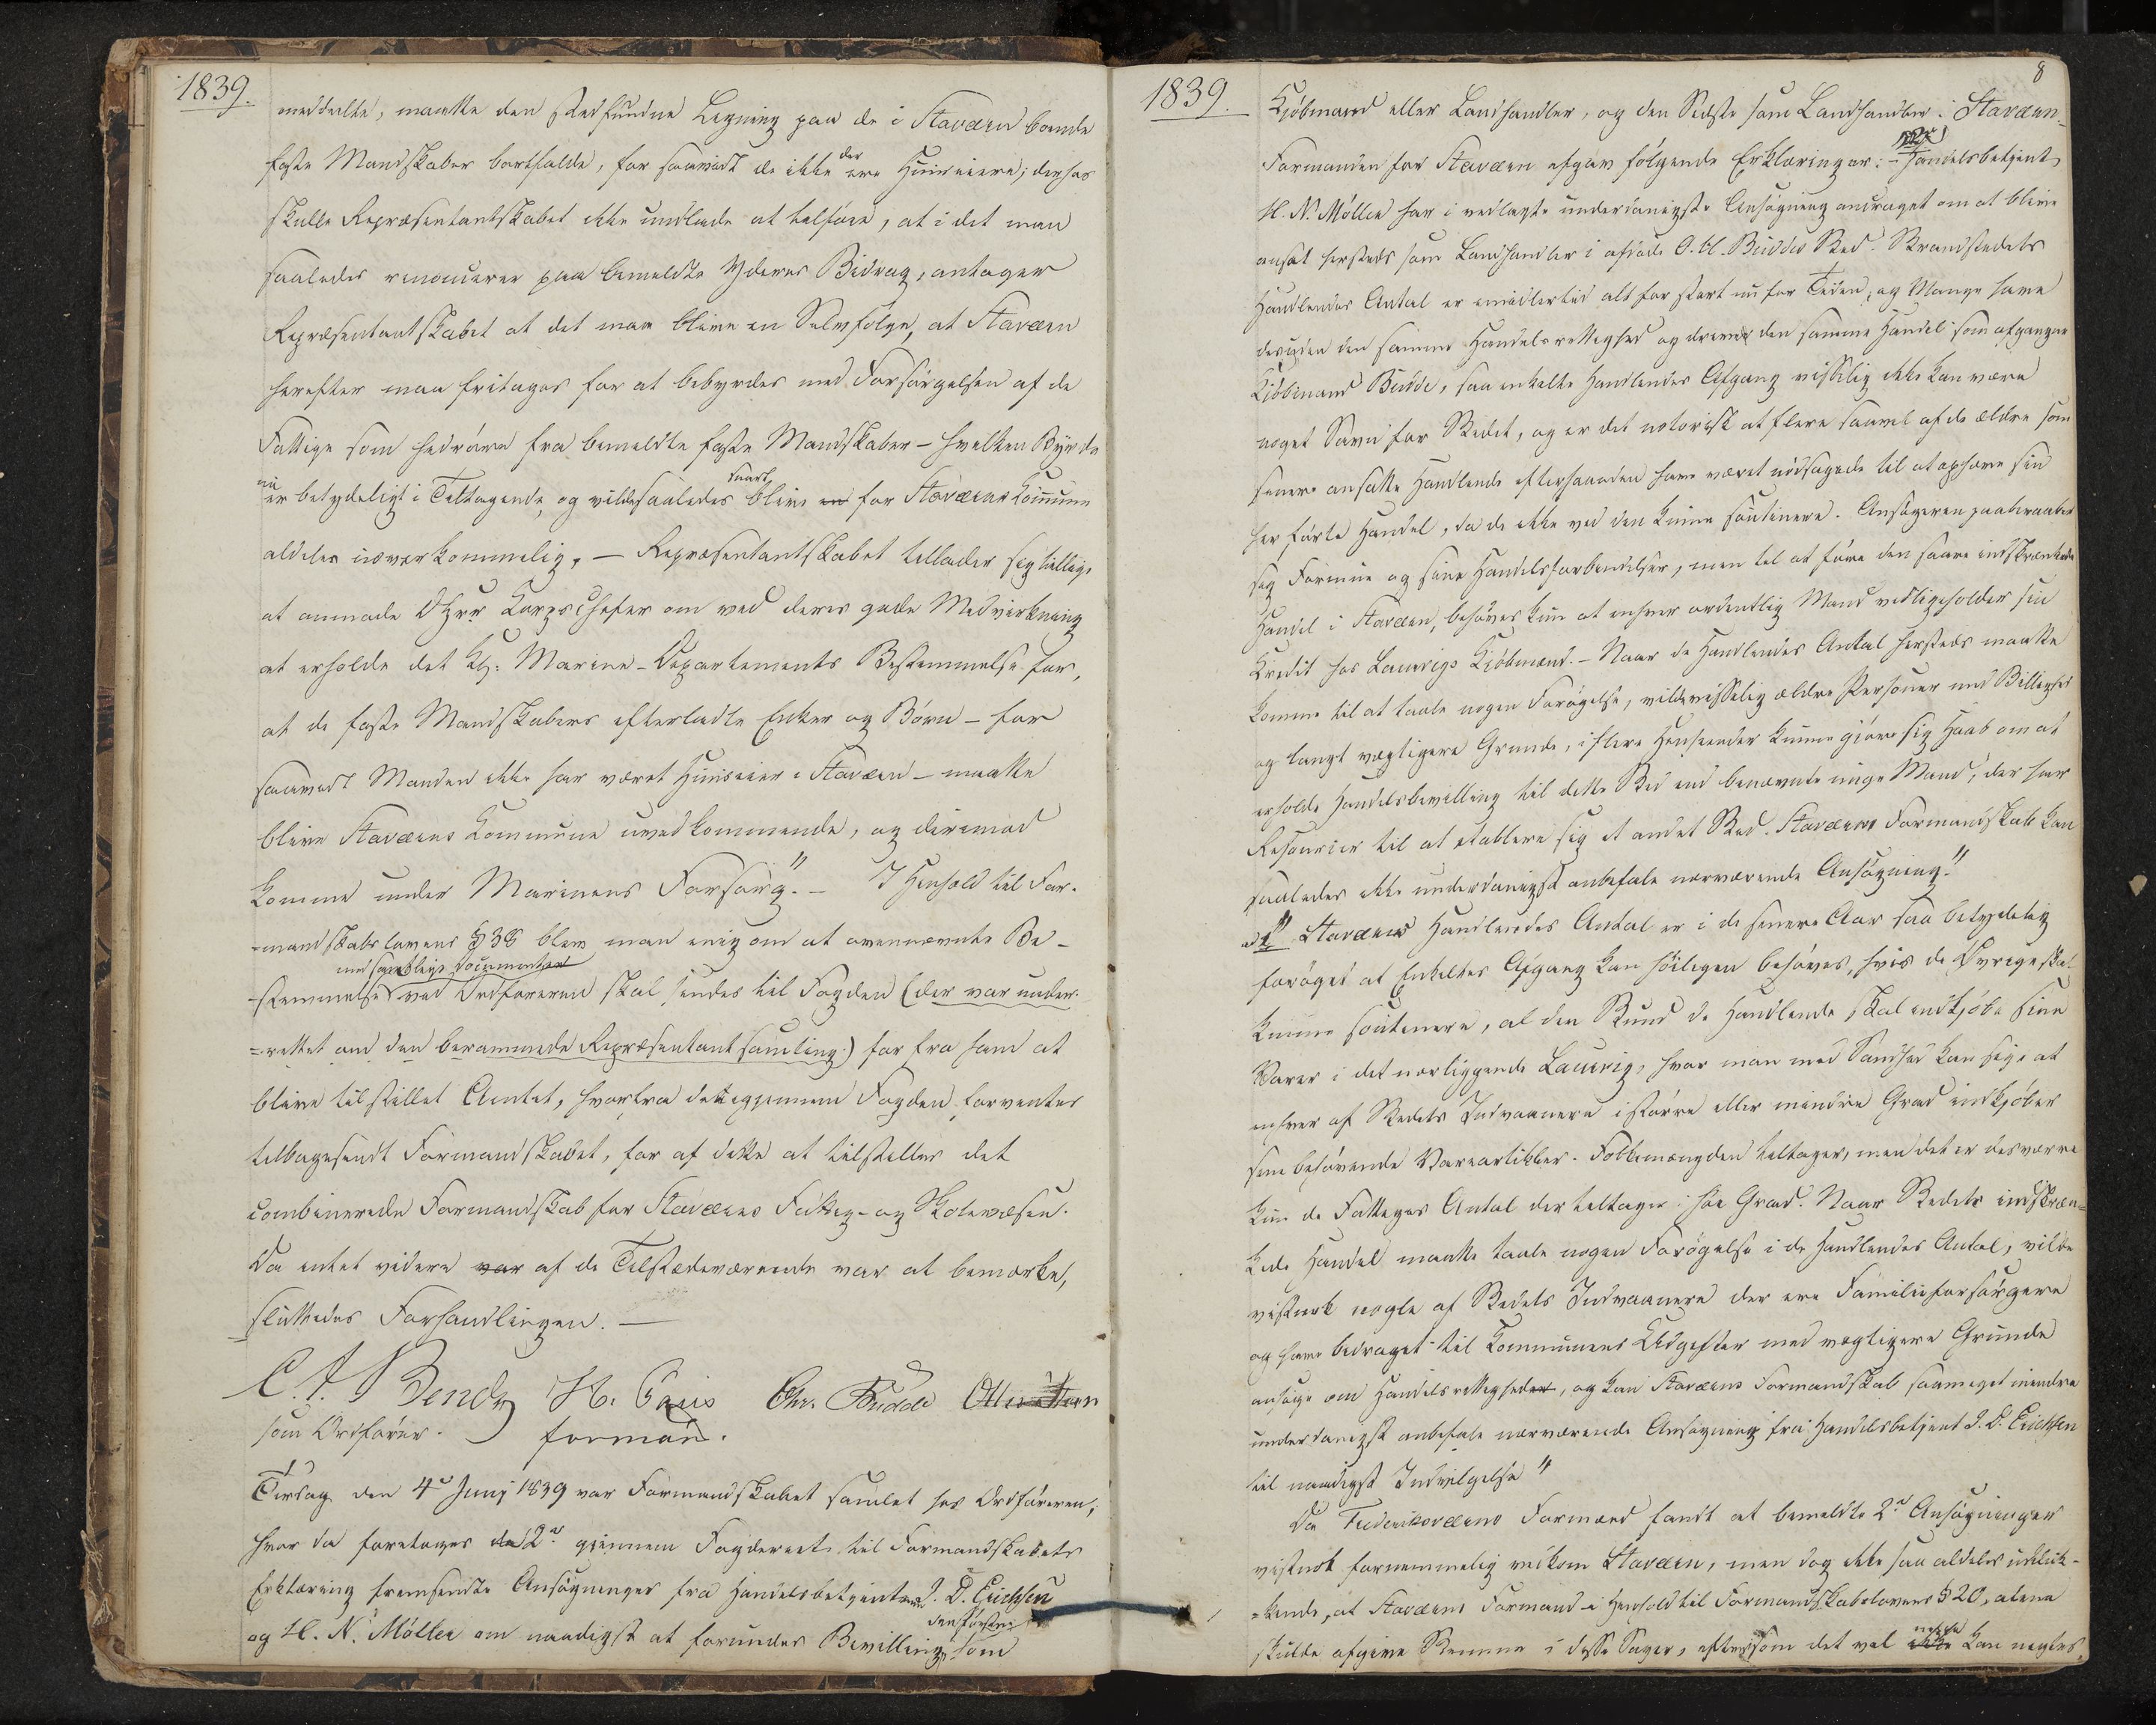 1839.
meddeelte, maatte den stedfundne Ligning paa de i Staværn boende
faste Mandskaber bortfalde, for saavidt de ikke der ere Huuseiere; derhos
skulle Repræsentantskabet ikke undlade at tilføie, at i det man
saaledes renoncerer paa bemeldte Yderes Bidrag, antager
Repræsentantskabet at det maa blive en Selvfølge, at Staværn
herefter maa fritages for at bebyrdes med Forsørgelsen af de
Fattige som hidrøre fra bemeldte faste Mandskaber – hvilken Byrde
nu er betydeligt i Tiltagende, og vilde saaledes snart blive en for Staværns Commune
aldeles uoverkommelig. – Repræsentantskabet tillader sig tillige
at anmode DHrr Corps Chefer om ved deres gode Medvirkning
at erholde det Kgl: Marine-Departements Bestemmelse for,
at de faste Mandskabers efterladte Enker og Børn – for
saavidt Manden ikke har været Huuseier i Staværn – maatte
blive Staværns Commune uvedkommende, og derimod
komme under Marinens Forsørg". – I Henhold til For-
=mandskabslovens § 38 blev man enig om at ovennævnte Be-
-stemmelse med samtlige Documenter ved Ordføreren skal sendes til Fogden (der var under-
=rettet om den berammede Repræsentantsamling) for fra ham at
blive tilstillet Amtet, hvorfra det igjennem Fogden forventes
tilbagesendt Formandskabet, for af dette at tilstilles det
combinerede Formandskab for Staværns Fattig- og Skolevæsen.
Da intet videre var af de Tilstedeværende var at bemærke,
sluttedes Forhandlingen. –
H. Gaus Chr. Budde
som Ordfører. formand.
Tirsdag den 4de Junj 1839 var Formandskabet samlet hos Ordføreren,
hvor da foretoges de 2de gjennem Fogderiet til Formandskabets
Erklæring fremsendte Ansøgninger fra Handelsbetjenterne J. D. Erichsen
og H. N. Møller om naadigst at forundes Bevilling, den første som
1839.
8
Kjøbmand eller Landhandler, og den Sidste som Landhandler i Staværn.
Formanden for Staværn afgav følgende Erklæringer: – Handelsbetjent
H. N. Møller har i vedlagte underdanigste Ansøgning andraget om at blive
ansat hersteds som Landhandler i afdøde O. H. Buddes Sted. Strandstedets
Handlendes Antal er imidlertid alt for stort nu for Tiden, og Mange have
desuden den samme Handelsrettighed og drive den samme Handel som afgangne
Kjøbmand Budde, saa enkelte Handlendes Afgang visselig ikke kan være
noget Savn for Stedet, og er det notorisk at flere saavel af de ældre som
senere ansatte Handlende efterhaanden have været nødsagede til at ophæve sin
her førte Handel, da de ikke ved den kunne soutinere. Ansøgeren paaberaaber
sig Formue og sine Handelsforbindelser, men til at føre den saare indskrænkede
Handel i Staværn, behøves kun at enhver ordentlig Mand vedligeholder sin
Credit hos Laurvigs Kjøbmænd. – Naar de Handlendes Antal hersteds maatte
komme til at taale nogen Forøgelse, vilde visselig ældre Personer med Billighed
og langt vægtigere Grunde, i flere Henseender kunne gjøre sig Haab om at
erholde Handelsbevilling til dette Sted end benævnte unge Mand, der har
Resourcer til at etablere sig et andet Sted. Staværns Formandskab kan
saaledes ikke underdanigst anbefale nærværende Ansøgning."
Staværns Handlendes Antal er i de senere Aar saa betydelig
forøget at Enkeltes Afgang kan høiligen behøves, hvis de Øvrige skal
kunne soutinere, al den Stund de Handlende skal indkjøbe sine
Varer i det nærliggende Laurvig, hvor man med Sandhed kan sige at
enhver af Stedets Indvaanere i større eller mindre Grad indkjøber
sine behøvende Varearticler. Folkemængden tiltager, men det er desværre
kun de Fattiges Antal der tiltager i høi Grad. Naar Stedets indskræn=
kede Handel maatte taale nogen Forøgelse i de Handlendes Antal, vilde
vistnok nogle af Stedets Indvaanere der ere Familieforsørgere
og have bidraget til Communens Udgifter med vægtigere Grunde
ansøge om Handelsrettigheder, og kan Staværns Formandskab saameget mindre
underdanigst anbefale nærværende Ansøgning fra Handelsbetjent J. D. Erichsen
til naadigst Indvilgelse"
Da Frederiksværns Formænd fandt at bemeldte 2de Ansøgninger
vistnok fornemmelig vedkom Staværn, men dog ikke saa aldeles udeluk-
=kende, at Staværns Formænd i Henhold til Formandskabslovens § 20, alene
skulde afgive Stemme i disse Sager, eftersom det vel ikke kan negtes,